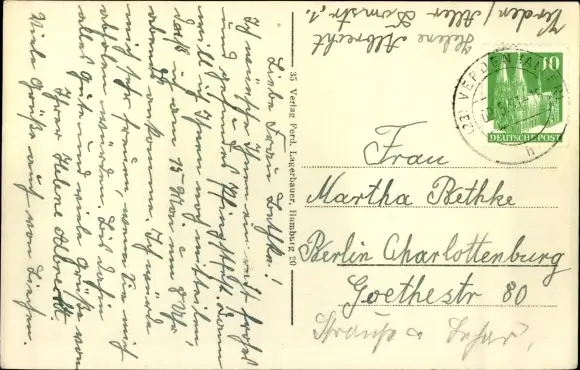 Liebe Frau Bethke!
Ich wünsche Ihnen ein recht frohes
und gesundes Pfingstfest. Dann
will ich Ihnen noch mitteilen
daß ich am 15. Mai um 8 Uhr
abends ankomme. Ich würde
mich sehr freuen, wenn Sie mich
abholen würden. Bis dahin
alles Gute und viele Grüße von
Ihrer Helene Albrecht.
Viele Grüße auch von
35 Verlag Ferd. Lagerbauer, Hamburg 20
Helene Albrecht
Verden / Aller Domstr. 1.
(23) VERDEN (ALLER)
10
DEUTSCHE POST
Frau
Martha Bethke
Berlin Charlottenburg
Goethestr 80
Strauß